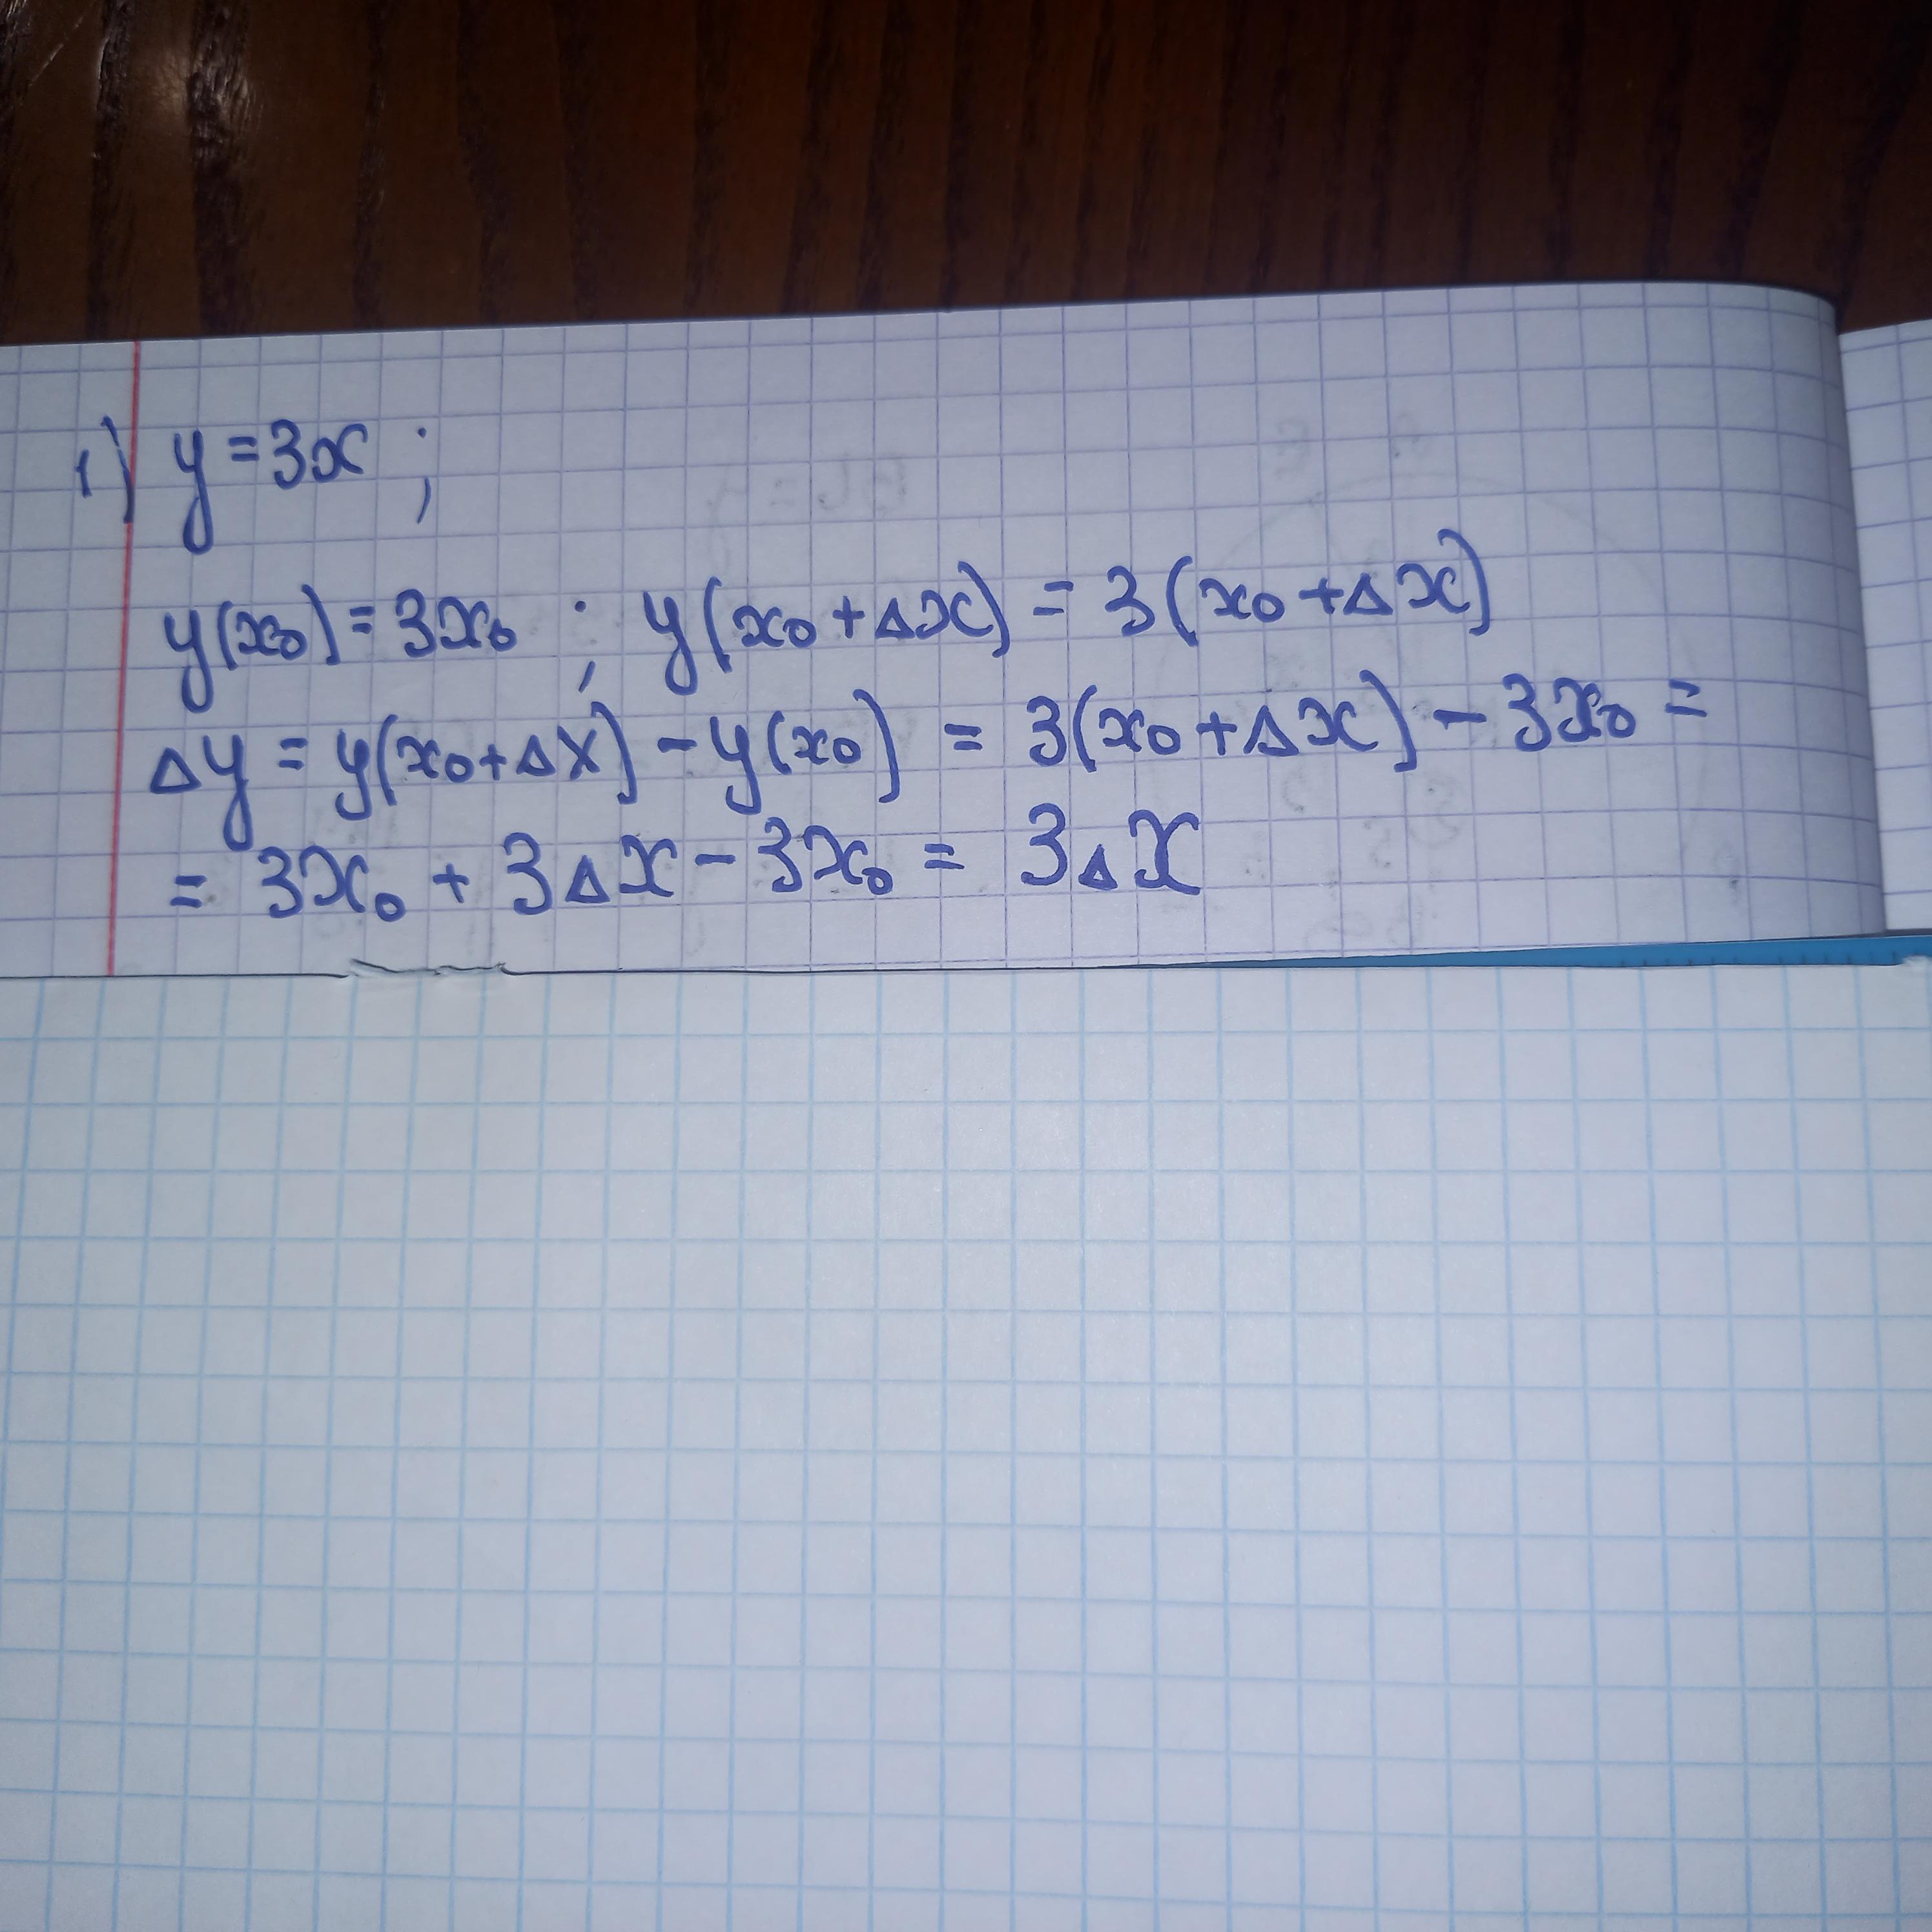 1) y = 3x ;
y(x₀) = 3x₀ ; y(x₀ + Δx) = 3(x₀ + Δx)
Δy = y(x₀ + Δx) - y(x₀) = 3(x₀ + Δx) - 3x₀ =
= 3x₀ + 3Δx - 3x₀ = 3Δx